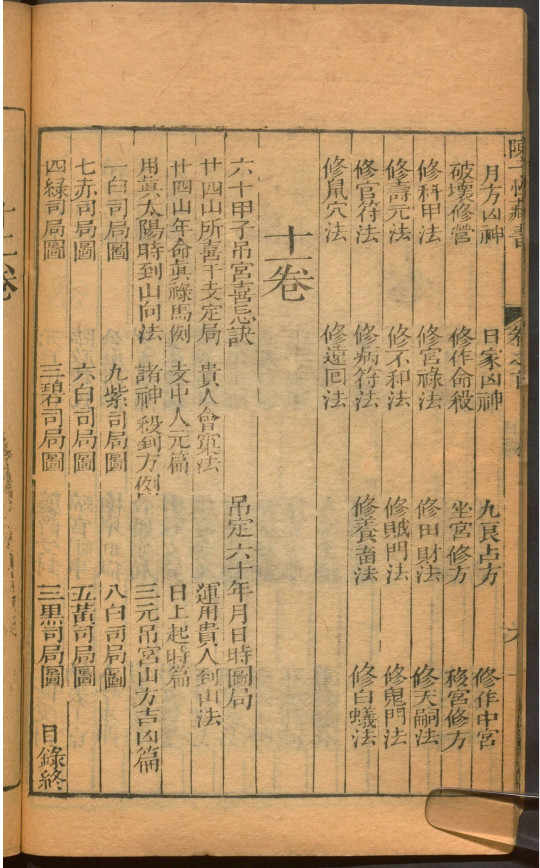 月方凶神　日家凶神　九良占方　修作中宮
破壞修營　修作命殺　坐宮修方　移宮修方
修科甲法　修官祿法　修田財法　修天嗣法
修壽元法　修不和法　修賊門法　修鬼門法
修官符法　修病符法　修養畜法　修白蟻法
修鼠穴法　修遠回法
十一卷
六十甲子吊宮喜忌訣　吊定六十年月日時圖局
廿四山所喜干支定局　貴人會窠法　運用貴人到山法
廿四山年命眞祿馬例　支中人元篇　日上起時篇
用眞太陽時到山向法　諸神殺到方例　三元吊宮山方吉凶篇
一白司局圖　九紫司局圖　八白司局圖
七赤司局圖　六白司局圖　五黃司局圖
四綠司局圖　三碧司局圖　三黑司局圖　目錄終